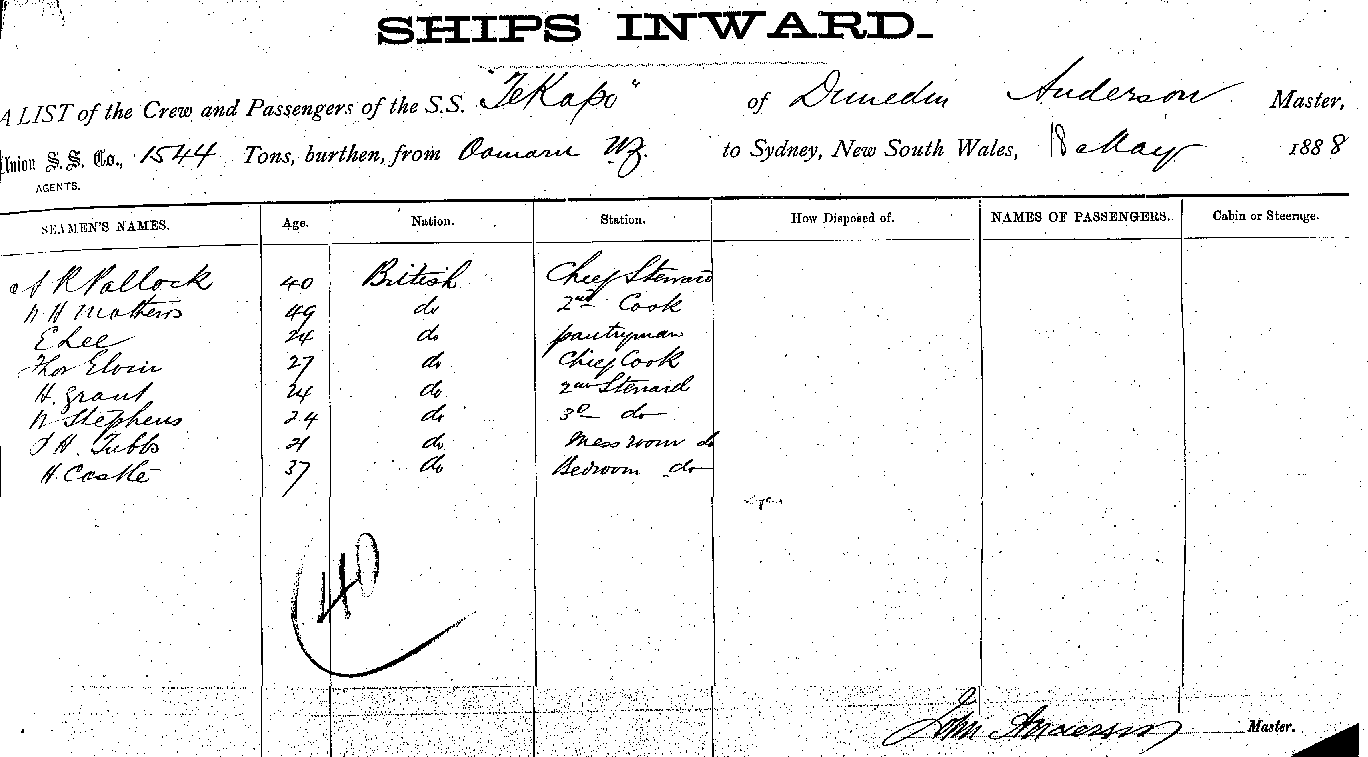 SHIPS INWARD.
A LIST of the Crew and Passengers of the S.S. "TeKapo" of Dunedin Anderson Master,
Union S.S. Co., 1544 Tons, burthen, from Oamaru NZ. to Sydney, New South Wales, 18 May 1888
AGENTS.
SEAMEN'S NAMES. Age. Nation. Station. How Disposed of. NAMES OF PASSENGERS. Cabin or Steerage.
A R Pollock 40 British Chief Steward
H Mathews 49 do 2nd Cook
E Lee 24 do pantryman
Thos Elvin 27 do Chief Cook
H. Grant 24 do 2nd Steward
Stephens 24 do 3d do
H. Tubbs 21 do Messroom do
H. Castle 37 do Bedroom do
40
John Anderson Master.